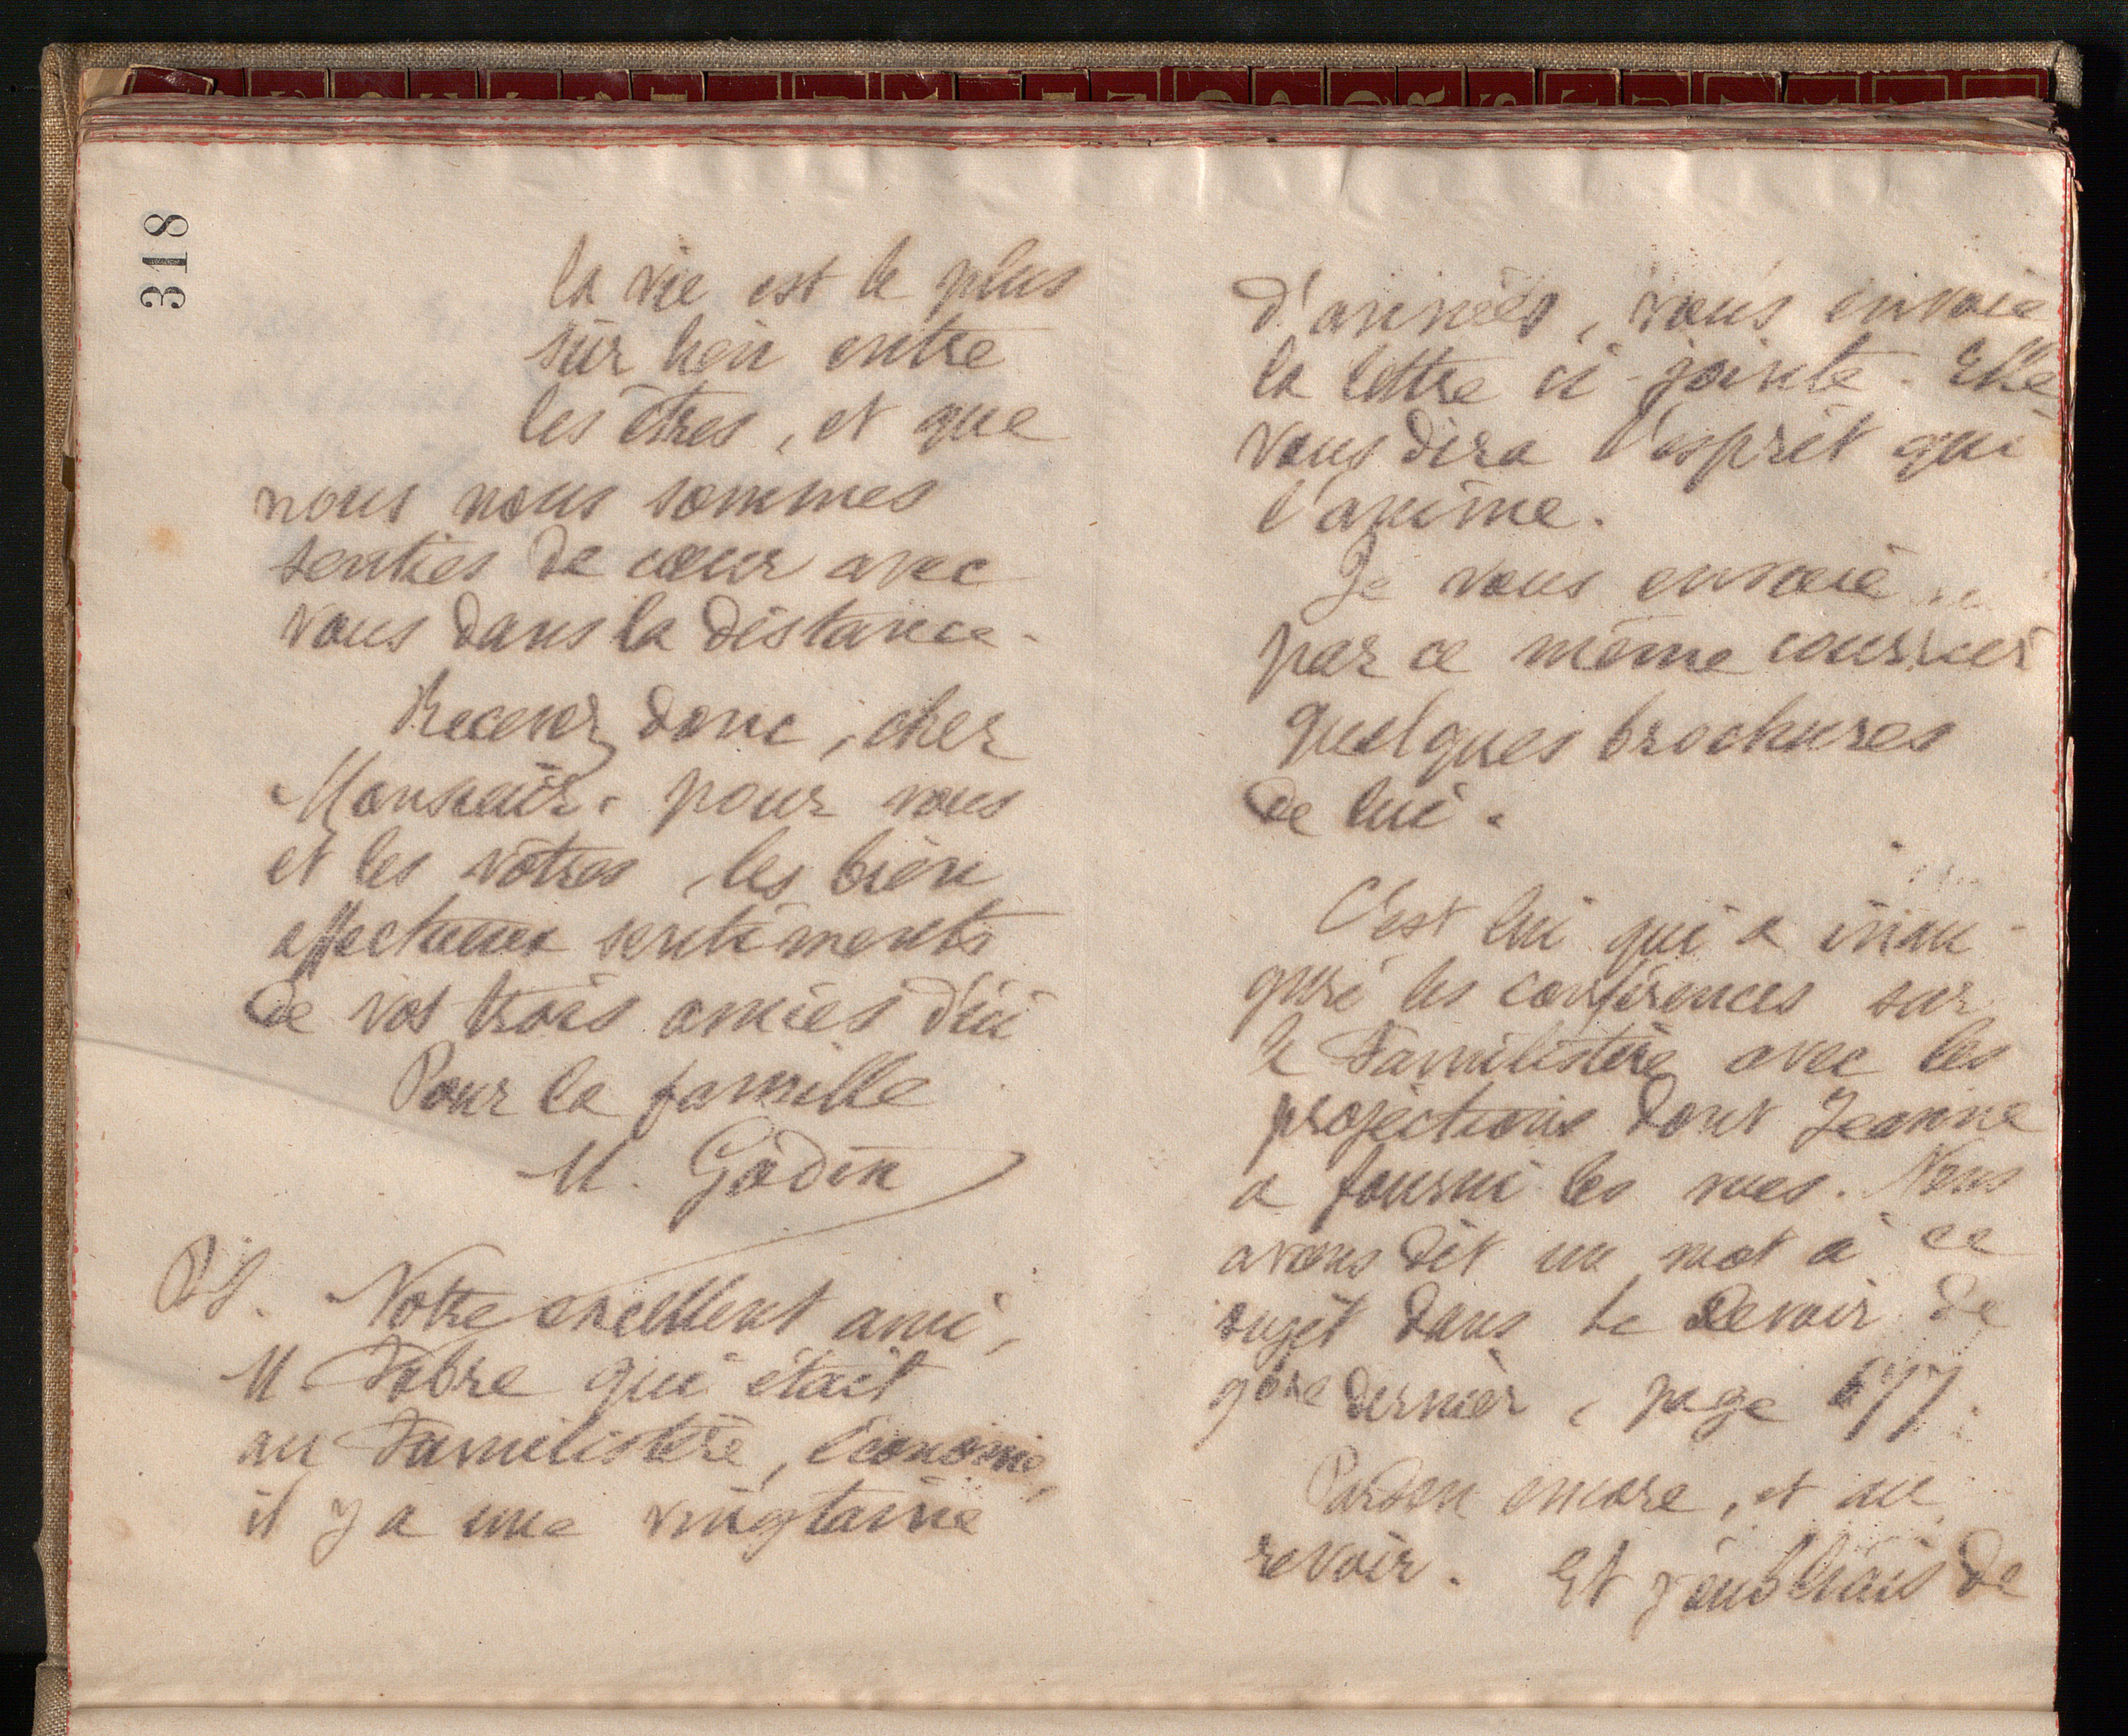 318
la vie est le plus
sûr lien entre
les êtres, et que
nous nous sommes
senties de cœur avec
vous dans la distance.
Recevez donc, cher
Monsieur, pour vous
et les vôtres, les bien
affectueux sentiments
de vos trois amies d'ici
Pour la famille
M. Godin
P.S. Notre excellent ami,
M. Fabre qui était
au Familistère, économe,
il y a une vingtaine
d'années, vous envoie
la lettre ci-jointe. Elle
vous dira l'esprit qui
l'anime.
Je vous envoie
par ce même courrier
quelques brochures
de lui.
C'est lui qui a inau-
guré les conférences sur
le Familistère avec les
projections dont Jeanne
a fourni les vues. Nous
avons dit un mot à ce
sujet dans le Devoir de
9bre dernier, page 677.
Pardon encore, et au
revoir. Et j'oubliais de